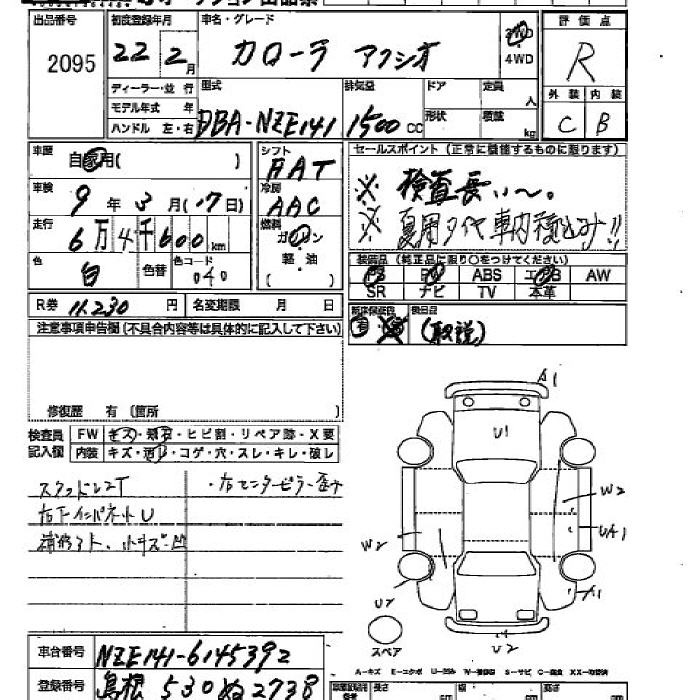 出品番号 初度登録年月 車名・グレード 評価点
2095 22年2月 カローラ アクシオ 2WD 4WD R
ディーラー・並行 型式 排気量 ドア 定員 人
モデル年式 年 外装 内装
ハンドル 左・右 DBA-NZE141 1500CC 形状 積載 kg C B
車歴 自家用( ) シフト FAT セールスポイント(正常に機能するものに限ります)
車検 9年3月(17日) 冷房 AAC ※ 検査長い〜。
走行 6万4千600km 燃料 ガソリン ※ 夏用タイヤ車内積込み!!
軽・油
色 白 色替 色コード 040 ( )
装備品(純正品に限り○をつけてください)
PS PW ABS エアB AW
SR ナビ TV 本革
R券 11.230円 名変期限 月 日
新車保証書 後日品
有 (取説)
注意事項申告欄(不具合内容等は具体的に記入して下さい)
修復歴 有(箇所
検査員 FW キズ・飛石・ヒビ割・リペア跡・X要
記入欄 内装 キズ・汚レ・コゲ・穴・スレ・キレ・破レ
スタッドレスT ・右センターピラー歪み
右下インパネトU
A1
U1
W2
UA1
W2
A1
U2
U2
スペア
車台番号 NZE141-6145392
登録番号 島根 530 ぬ 2738
A-キズ E-エクボ
長さ cm 幅 cm 高さ cm